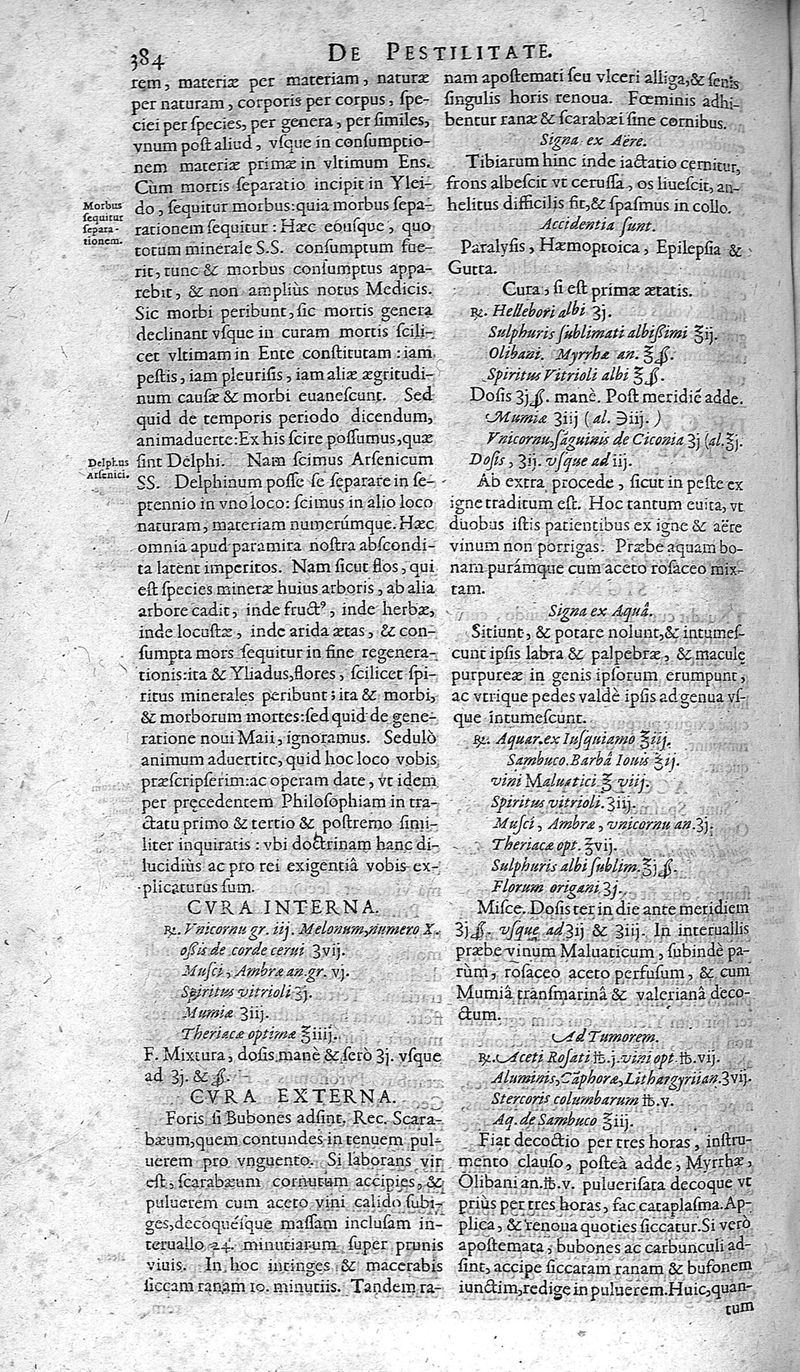 384
DE PESTILITATE.
rem, materiæ per materiam, naturæ
per naturam, corporis per corpus, ſpe-
ciei per ſpecies, per genera, per ſimiles,
vnum poſt aliud, vſque in conſumptio-
nem materiæ primæ in vltimum Ens.
Cùm mortis ſeparatio incipit in Ylei-
Morbus
ſequitur
ſepara-
tionem.
do, ſequitur morbus: quia morbus ſepa-
rationem ſequitur: Hæc eouſque, quo
totum minerale S.S. conſumptum fue-
rit, tunc & morbus conſumptus appa-
rebit, & non ampliùs notus Medicis.
Sic morbi peribunt, ſic mortis genera
declinant vſque in curam mortis ſcili-
cet vltimam in Ente conſtitutam: iam
peſtis, iam pleuriſis, iam aliæ ægritudi-
num cauſæ & morbi euaneſcunt. Sed
quid de temporis periodo dicendum,
animaduerte: Ex his ſcire poſſumus, quæ
Delphus
Arſenici.
ſint Delphi. Nam ſcimus Arſenicum
SS. Delphinum poſſe ſe ſeparare in ſe-
ptennio in vno loco: ſcimus in alio loco
naturam, materiam numerúmque. Hæc
omnia apud paramira noſtra abſcondi-
ta latent imperitos. Nam ſicut flos, qui
eſt ſpecies mineræ huius arboris, ab alia
arbore cadit, inde fructꝰ, inde herbæ,
inde locuſtæ, inde arida ætas, & con-
ſumpta mors ſequitur in fine regenera-
tionis: ita & Yliadus, flores, ſcilicet ſpi-
ritus minerales peribunt; ita & morbi,
& morborum mortes: ſed quid de gene-
ratione noui Maii, ignoramus. Sedulò
animum aduertite, quid hoc loco vobis
præſcripſerim: ac operam date, vt idem
per præcedentem Philoſophiam in tra-
ctatu primo & tertio & poſtremo ſimi-
liter inquiratis: vbi doctrinam hanc di-
lucidiùs ac pro rei exigentiâ vobis ex-
plicaturus ſum.
CVRA INTERNA.
℞. Vnicornu gr. iij. Melonum, numero X.
oſsis de corde cerui ʒvij.
Muſci, Ambræ an. gr. vj.
Spiritus vitrioli ʒj.
Mumiæ ʒiij.
Theriacæ optimæ ℥iiij.
F. Mixtura, doſis manè & ſerò ʒj. vſque
ad ʒj. & ß.
CVRA EXTERNA.
Foris ſi Bubones adſint, Rec. Scara-
bæum, quem contundes in tenuem pul-
uerem pro vnguento. Si laborans vir
eſt, ſcarabæum cornutum accipies, &
puluerem cum aceto vini calido ſubi-
ges, decoquéſque maſſam incluſam in-
teruallo 24. minutiarum ſuper prunis
viuis. In hoc intinges & macerabis
ſiccam ranam 10. minutiis. Tandem ra-
nam apoſtemati ſeu vlceri alliga, & ſenis
ſingulis horis renoua. Fœminis adhi-
bentur ranæ & ſcarabæi ſine cornibus.
Signa ex Aëre.
Tibiarum hinc inde iactatio cernitur,
frons albeſcit vt ceruſſa, os liueſcit, an-
helitus difficilis fit, & ſpaſmus in collo.
Accidentia ſunt.
Paralyſis, Hæmoptoica, Epilepſia &
Gutta.
Cura, ſi eſt primæ ætatis.
℞. Hellebori albi ʒj.
Sulphuris ſublimati albißimi ℥ij.
Olibani. Myrrhæ an. ℥ß.
Spiritus Vitrioli albi ℥ß.
Doſis ʒjß. manè. Poſt meridiē adde.
Mumiæ ʒiij (al. ℈iij.)
Vnicornu, ſãguinis de Ciconia ʒj (al. ℥j.
Doſis, ʒij. vſque ad iij.
Ab extra procede, ſicut in peſte ex
igne traditum eſt. Hoc tantum euita, vt
duobus iſtis patientibus ex igne & aëre
vinum non porrigas. Præbe aquam bo-
nam purámque cum aceto roſaceo mix-
tam.
Signa ex Aquâ.
Sitiunt, & potare nolunt, & intumeſ-
cunt ipſis labra & palpebræ, & maculę
purpureæ in genis ipſorum erumpunt,
ac vtrique pedes valdè ipſis ad genua vſ-
que intumeſcunt.
℞. Aquar. ex Iuſquiamo ℥iij.
Sambuco. Barbâ Iouis ℥ij.
vini Maluatici ℥ viij.
Spiritus vitrioli. ʒiij.
Muſci, Ambræ, vnicornu an. ʒj.
Theriacæ opt. ℥vij.
Sulphuris albi ſublim. ℥jß.
Florum origani ʒj.
Miſce. Doſis ter in die ante meridiem
ʒjß. vſque ad ʒij & ʒiij. In interuallis
præbe vinum Maluaticum, ſubindè pa-
rùm, roſaceo aceto perfuſum, & cum
Mumiâ tranſmarinâ & valerianâ deco-
ctum.
Ad Tumorem.
℞. Aceti Roſati ℔.j. vini opt. ℔.vij.
Aluminis, Cãphoræ, Lithargyrii an. ʒvij.
Stercoris columbarum ℔.v.
Aq. de Sambuco ℥iij.
Fiat decoctio per tres horas, inſtru-
mento clauſo, poſteà adde, Myrrhæ,
Olibani an. ℔.v. pulueriſata decoque vt
priùs per tres horas, fac cataplaſma. Ap-
plica, & renoua quoties ſiccatur. Si verò
apoſtemata, bubones ac carbunculi ad-
ſint, accipe ſiccatam ranam & bufonem
iunctim, redige in puluerem. Huic, quan-
tum